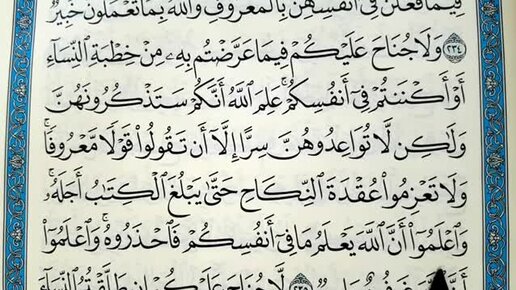 فِيمَا فَعَلْنَ فِىٓ أَنفُسِهِنَّ بِٱلْمَعْرُوفِ وَٱللَّهُ بِمَا تَعْمَلُونَ خَبِيرٌ
٢٣٤ وَلَا جُنَاحَ عَلَيْكُمْ فِيمَا عَرَّضْتُم بِهِۦ مِنْ خِطْبَةِ ٱلنِّسَآءِ
أَوْ أَكْنَنتُمْ فِىٓ أَنفُسِكُمْ ۚ عَلِمَ ٱللَّهُ أَنَّكُمْ سَتَذْكُرُونَهُنَّ
وَلَٰكِن لَّا تُوَاعِدُوهُنَّ سِرًّا إِلَّآ أَن تَقُولُوا۟ قَوْلًا مَّعْرُوفًا ۚ
وَلَا تَعْزِمُوا۟ عُقْدَةَ ٱلنِّكَاحِ حَتَّىٰ يَبْلُغَ ٱلْكِتَٰبُ أَجَلَهُۥ ۚ
وَٱعْلَمُوٓا۟ أَنَّ ٱللَّهَ يَعْلَمُ مَا فِىٓ أَنفُسِكُمْ فَٱحْذَرُوهُ ۚ وَٱعْلَمُوٓا۟
لَّا جُنَاحَ عَلَيْكُمْ إِن طَلَّقْتُمُ ٱلنِّسَآءَ